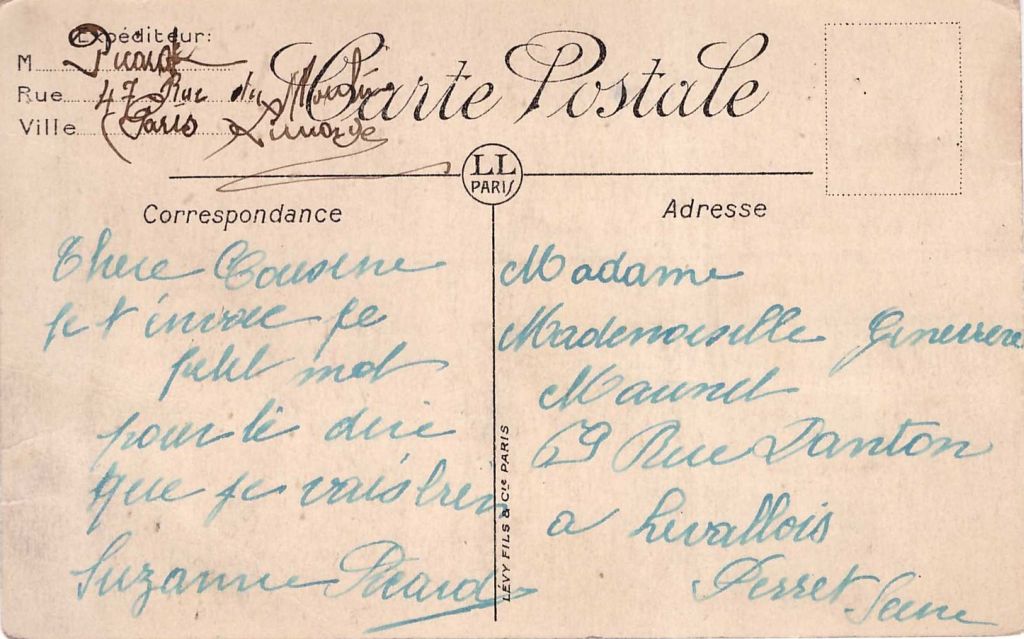 Expéditeur:
M Picard
Rue 47 Rue du
Ville Paris
Carte Postale
LL
PARIS
Correspondance
Chere Cousine
je t'envoie ce
petit mot
pour te dire
que je vais bien
Suzanne Picard
LÉVY FILS & Cie PARIS
Adresse
Madame
Mademoiselle Genevieve
Maunet
69 Rue Danton
a Levallois
Perret Seine